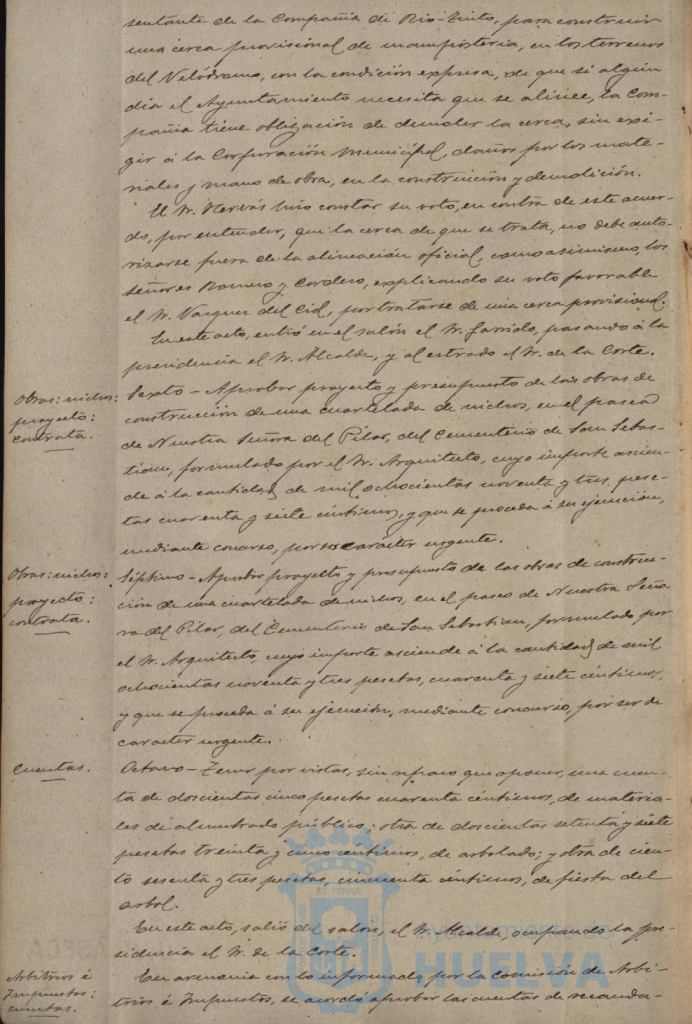 sentante de la Compañia de Rio-Tinto, para construir
una cerca provisional de mamposteria, en los terrenos
del Velódromo, con la condición expresa, de que si algún
dia el Ayuntamiento necesita que se alinée, la Com-
pañia tiene obligación de demoler la cerca, sin exi-
gir á la Corporación Municipal, daños por los mate-
riales y mano de obra, en la construcción y demolición.
El Sr. Hervás hizo constar su voto, en contra de este acuer-
do, por entender, que la cerca de que se trata, no debe auto-
rizarse fuera de la alineación oficial, como asimismo, los
señores Romero y Cordero, explicando su voto favorable
el Sr. Vazquez del Cid, por tratarse de una cerca provisional.
En este acto, entró en el salón el Sr. Garrido, pasando á la
presidencia el Sr. Alcalde, y al estrado el Sr. de la Corte.
Obras: nichos:
proyecto:
contrata.
Sexto - Aprobar proyecto y presupuesto de las obras de
construcción de una cuartelada de nichos, en el paseo
de Nuestra Señora del Pilar, del Cementerio de San Sebas-
tian, formulado por el Sr. Arquitecto, cuyo importe ascien-
de á la cantidad de mil ochocientas noventa y tres pese-
tas cuarenta y siete céntimos, y que se proceda á su ejecución,
mediante concurso, por su carácter urgente.
Obras: nichos:
proyecto:
contrata.
Séptimo - Aprobar proyecto y presupuesto de las obras de construc-
ción de una cuartelada de nichos, en el paseo de Nuestra Seño-
ra del Pilar, del Cementerio de San Sebastian, formulado por
el Sr. Arquitecto, cuyo importe asciende á la cantidad de mil
ochocientas noventa y tres pesetas, cuarenta y siete céntimos,
y que se proceda á su ejecución, mediante concurso, por ser de
carácter urgente.
Cuentas.
Octavo - Tener por vistas, sin reparo que oponer, una cuen-
ta de doscientas cinco pesetas cuarenta céntimos, de materia-
les de alumbrado público; otra de doscientas setenta y siete
pesetas treinta y cinco céntimos, de arbolado; y otra de cien-
to sesenta y tres pesetas, cincuenta céntimos, de fiesta del
arbol.
En este acto, salió del salón, el Sr. Alcalde, ocupando la pre-
sidencia el Sr. de la Corte.
Arbitrios é
Impuestos:
cuentas.
En armonia con lo informado por la Comisión de Arbi-
trios é Impuestos, se acordó aprobar las cuentas de recauda-
Ayuntamiento de
HUELVA